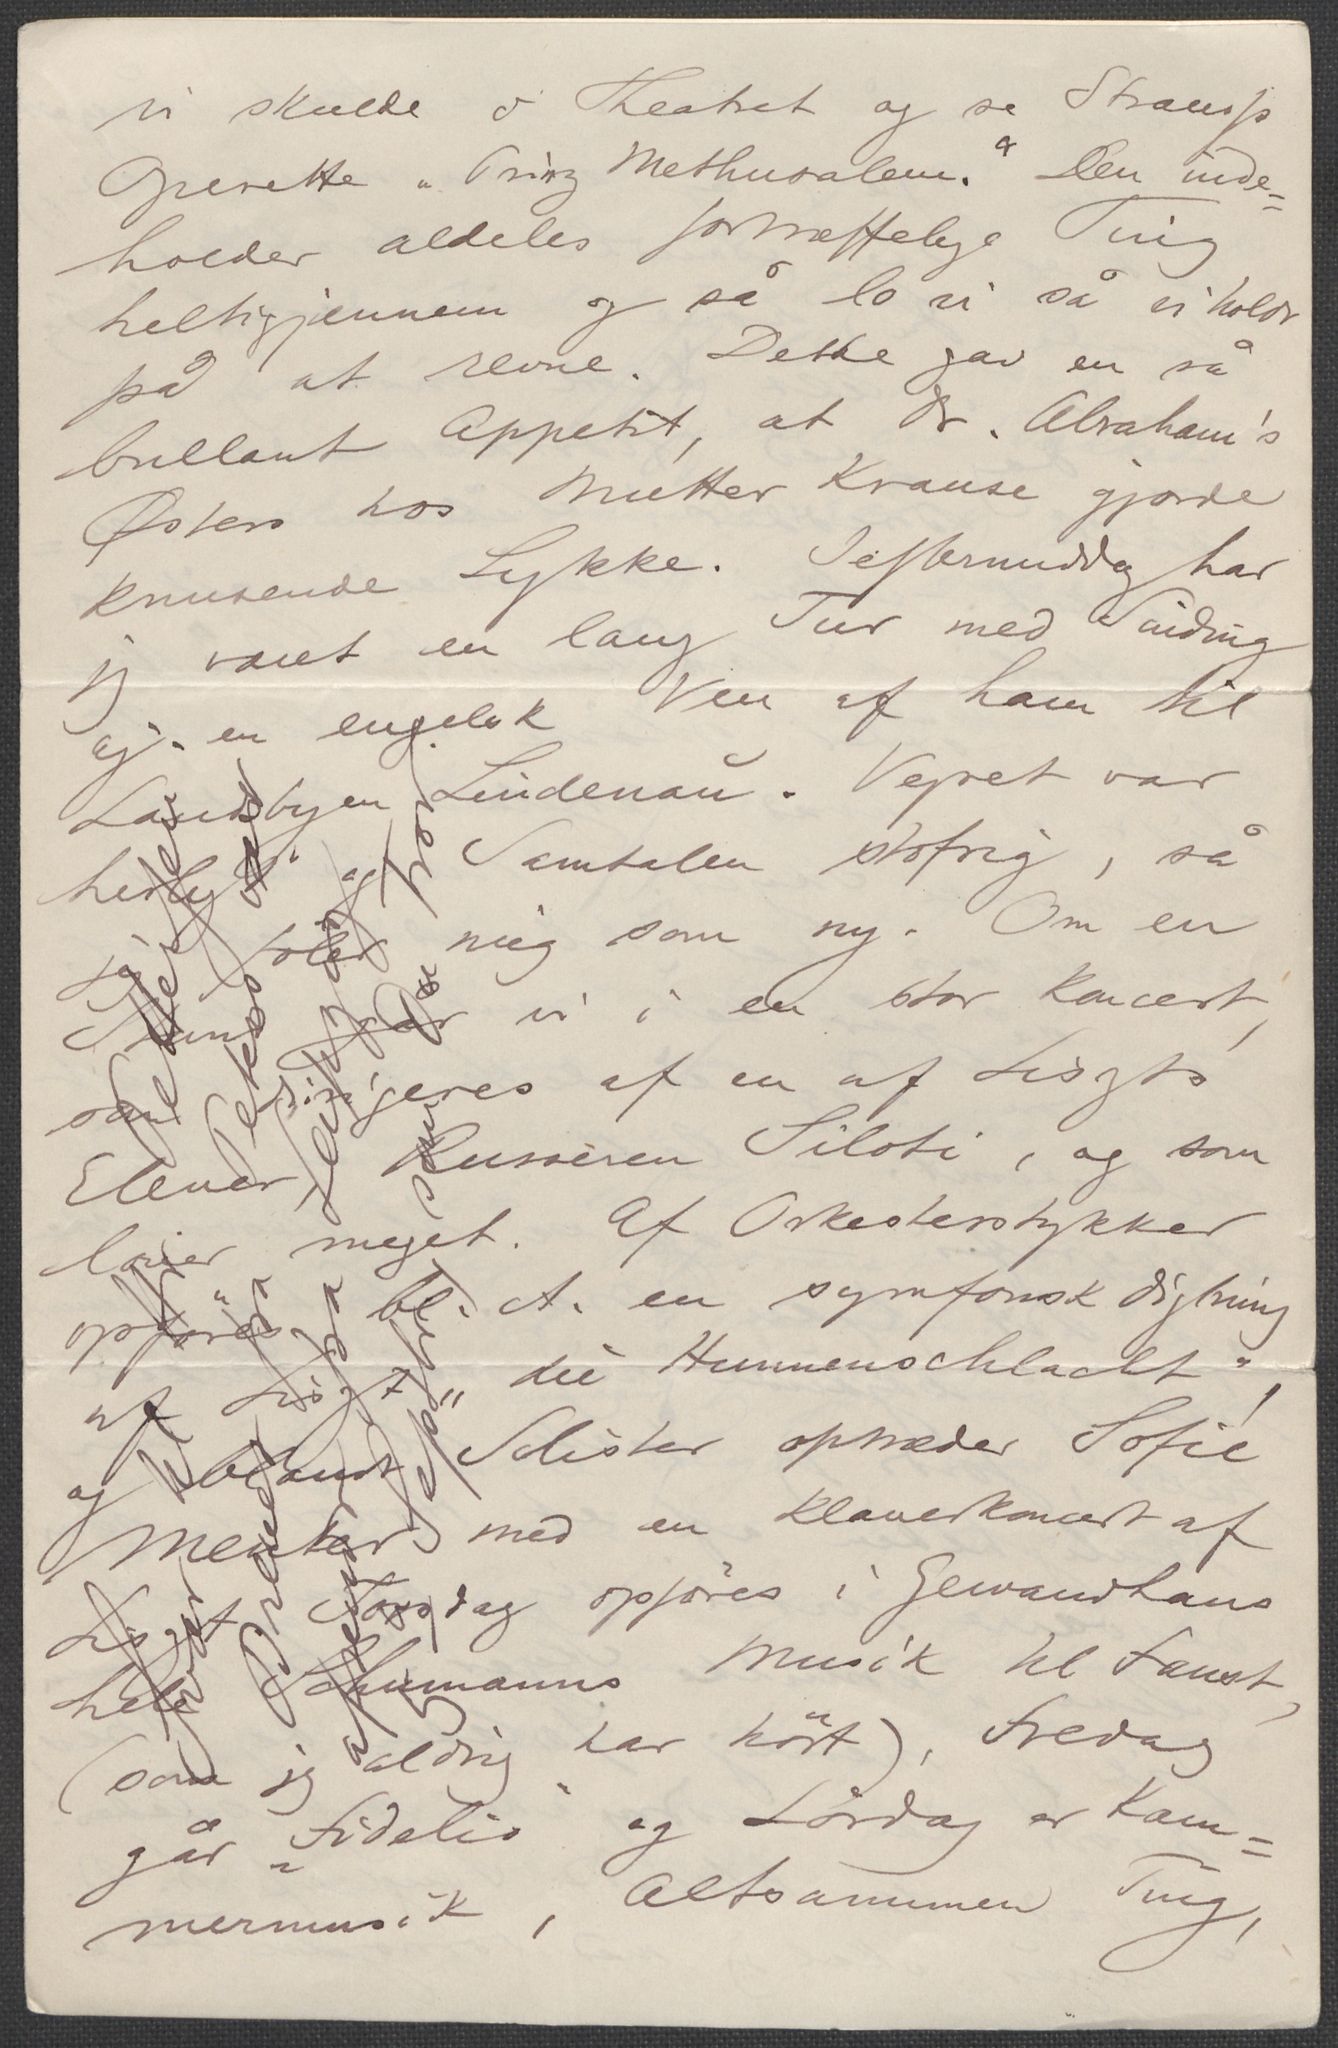 vi skulde i Theatret og se Strauss's
Operette „Prinz Methusalem." Den inde=
holder aldeles fortræffelige Ting
heltigjennem og så lo vi så vi holdt
på at revne. Dette gav en så
brillant Appetit, at Dr. Abraham's
Østers hos Mutter Krause gjorde
knusende Lykke. Ieftermiddag har
jeg været en lang Tur med Sinding
og en engelsk Ven af ham til
Landsbyen Lindenau. Vejret var
herligt og Samtalen stofrig, så
jeg føler mig som ny. Om en
Stund går vi i en stor Koncert,
som dirigeres af en af Liszts
Elever, Russeren Siloti, og som
lover meget. Af Orkesterstykker
opføres bl. A. en symfonisk Digtning
af Liszt „die Hunnenschlacht",
og blandt Solister optræder Sofie
Menter med en Klaverkoncert af
Liszt. Torsdag opføres i Gewandhaus
hele Schumanns Musik til Faust,
(som jeg aldrig har hört), Fredag
går „Fidelio" og Lördag er Kam=
mermusik, Altsammen Ting,